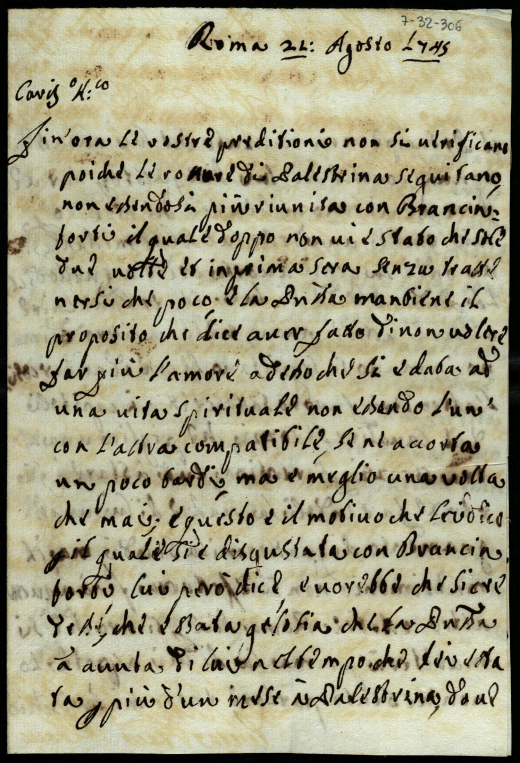 7-32-306
Roma 21: Agosto 1745
Caris.º A:co
Fin'ora le vostre preditioni non si verificano
poiche le rotture di Palestrina seguitano
non essendosi più riunita con Brancin=
forti il quale doppo non vi è stato che sole
due volte et in prima sera senza tratte
nersi che poco e la Prin.ssa mantiene il
proposito che dice aver fatto di non volere
far più l'amore adesso che si è data ad
una vita spirituale non essendo l'un'
con l'altra compatibile, se ne accorta
un poco tardi ma è meglio una volta
che mai, e questo e il motivo che lei dice
p il quale si è disgustata con Brancin
forti lui però dice e vorebbe che si cre
desse, che è stata gelosia che la Prin.ssa
à avuta di lui nel tempo che lei è sta
ta p più d'un mese à Palestrina, dove